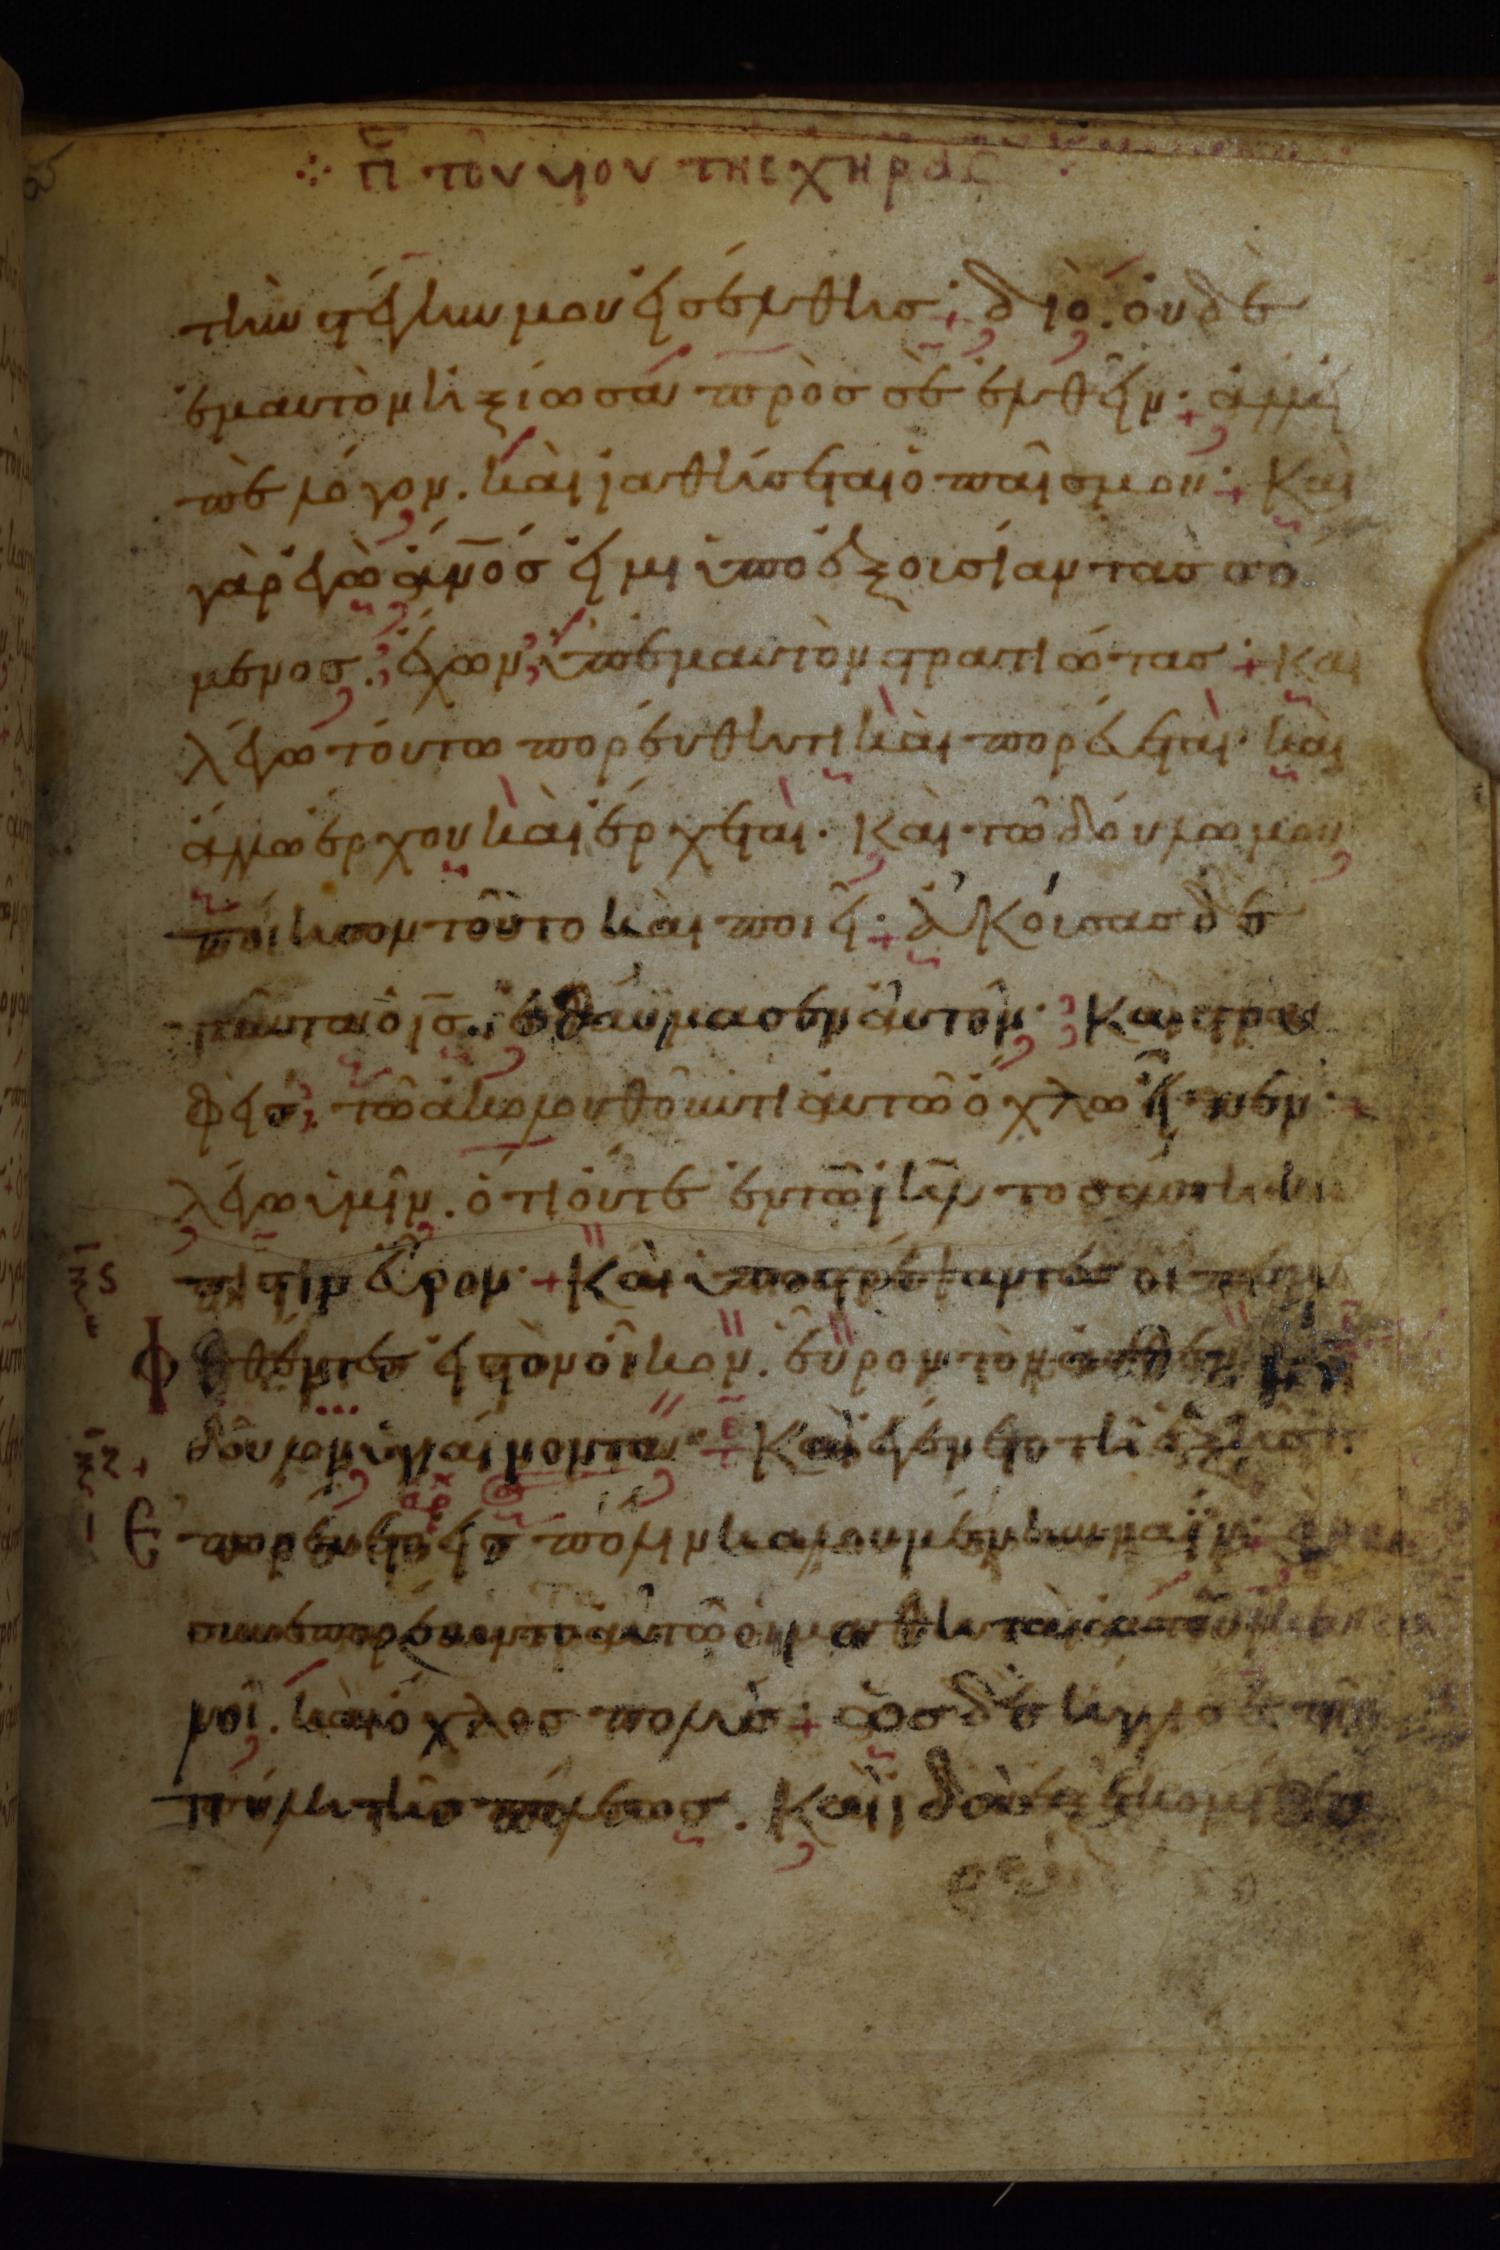 π̅ε̅ τοῦ υἱοῦ τῆς χήρας
τὴν στέγην μου εἰσέλθης· διὸ. οὐδὲ
ἐμαυτὸν ἠξίωσα πρὸς σὲ ἐλθεῖν· ἀλλ' εἰ
πὲ λόγον. καὶ ἰαθήσεται ὁ παῖς μου· Καὶ
γὰρ ἐγὼ ἄν̅ο̅ς εἰμι ὑπὸ ἐξουσίαν τασσό
μενος. ἔχων ὑπ' ἐμαυτὸν στρατιώτας· καὶ
λέγω τούτω πορεύθητι καὶ πορεύεται· καὶ
ἄλλω ἔρχου καὶ ἔρχεται. Καὶ τῶ δούλω μου
ποίησον τοῦτο καὶ ποιεῖ· Ἀκούσας δὲ
ταῦτα ὁ ι̅ς̅. ἐθαύμασεν αὐτόν· Καὶ στρα
φεὶς τῶ ἀκολουθοῦντι αὐτῶ ὄχλω εἶπεν·
λέγω ὑμῖν. ὅτι οὔτε ἐν τῶ ι̅η̅λ̅ τοσαύτην
πίστιν εὗρον· Καὶ ὑποστρέψαντες οἱ πεμ
φθέντες εἰς τὸν οἶκον. εὗρον τὸν ἀσθενοῦντα
δοῦλον ὑγιαίνοντα· Καὶ ἐγένετο τῆ ἑξῆς
ἐπορεύετο εἰς πόλιν καλουμένην ναΐν·
συνεπορεύοντο αὐτῶ οἱ μαθηταὶ αὐτοῦ ἱκα
νοί. καὶ ὄχλος πολύς· Ὡς δὲ ἤγγισε τῆ
πύλη τῆς πόλεως. Καὶ ἰδοὺ ἐξεκομίζετο